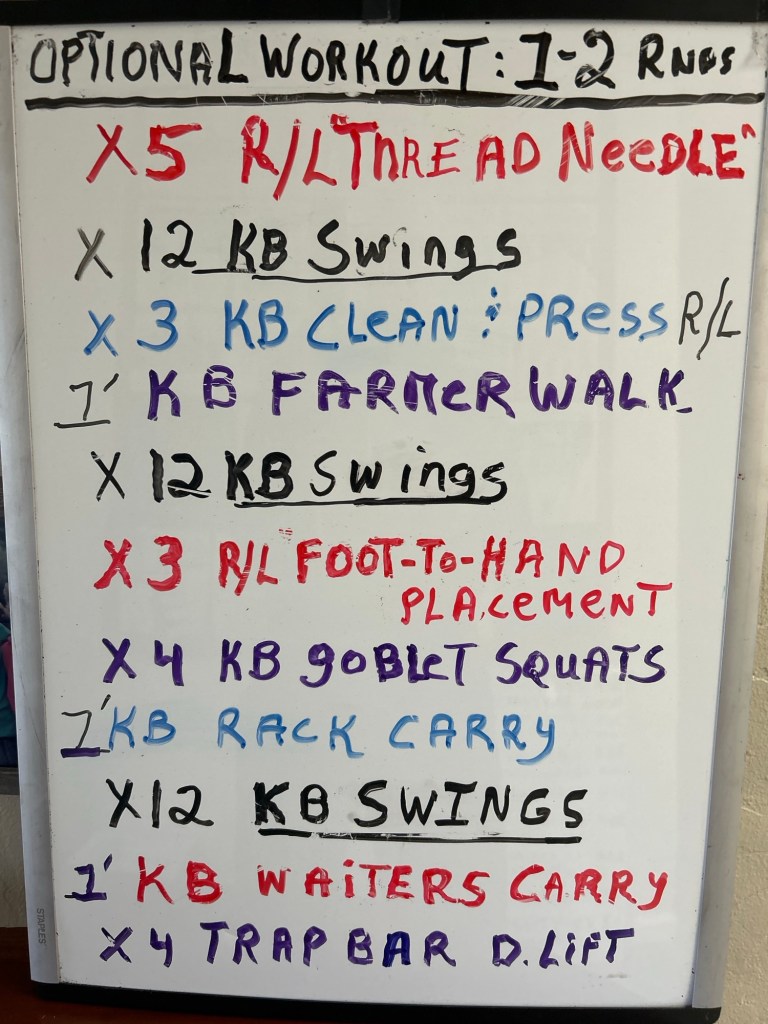 OPTIONAL WORKOUT: 1-2 RNDS
X5 R/L "THREAD NEEDLE"
X 12 KB Swings
X 3 KB CLEAN & PRESS R/L
1' KB FARMER WALK
X 12 KB Swings
X 3 R/L FOOT-TO-HAND
PLACEMENT
X 4 KB goBLET SQUATS
1' KB RACK CARRY
X12 KB SWINGS
1' KB WAiTERS CARRY
X 4 TRAP BAR D.LiFT
STAPLES